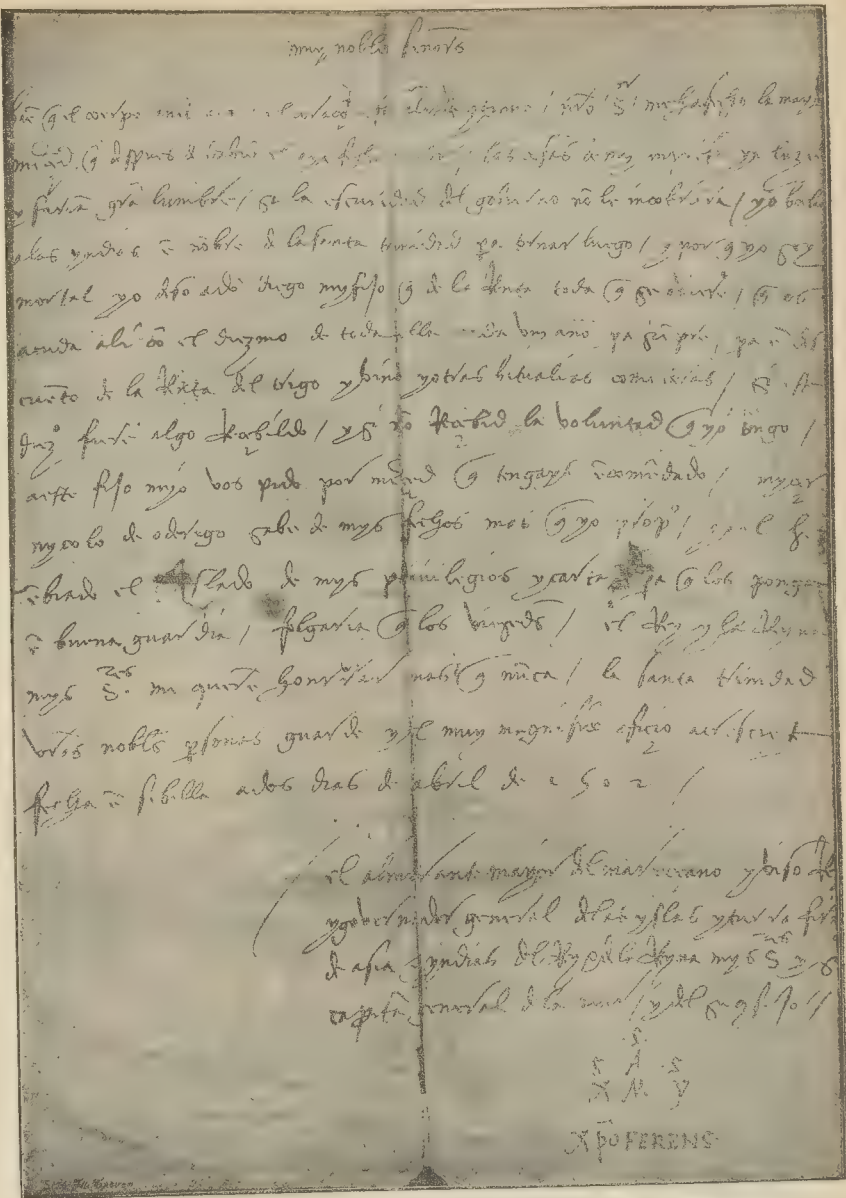 muy nobles señores
bie q el coerpo
q despues
y faria gra lumbre / sy la escuridad del govierno no le incobriera / yo buelbo
a las yndias e nobre de la santa trinidad pa tornar luego / y por q yo soy
mortal yo dexo a do diego my fijo q de la Renta toda q se oviere / q os
acuda ali co el diezmo de toda ella cada un año pa sienpre / pa e des
cueto de la Renta del trigo y bino y otras bitualias comideras / si este
diezo fuere algo Recebildo / y si no Recebid la voluntad q yo tengo /
a este fijo myo vos pido por merced q tengays ecomedado / myçer
nycolo de oderego sabe de mys fechos mas q yo propo /
ebiado el treslado de mys privilegios y cartas pa q los ponga
e buena guardia / folgaria q los vieseds / el Rey y la Reyna
mys S.res me quere honrrar mas q nuca / la santa trinidad
vras nobles psonas guarde y el muy magnifico oficio acresciente
fecha e sebilla a dos dias de abril de 1502 /
el almirante mayor del mar oceano y biso Rey
y governador general de las yslas y tierra firme
de asia e yndias del Rey e de la Reyna mys S.res y su
capita general de la mar / y del su cosejo //
.S.
S A S
X M Y
XpoFERENS